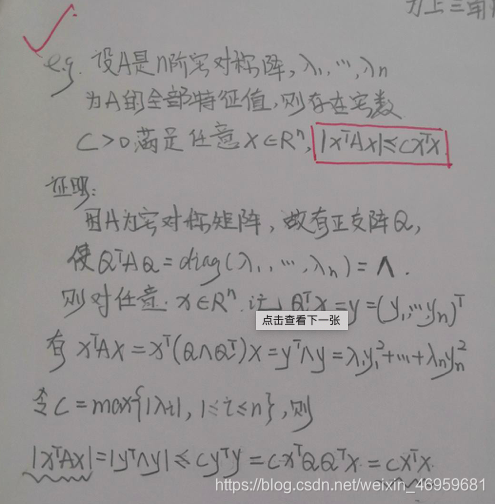 力上三角
e.g. 设A是n阶实对称阵, λ₁,…,λₙ
为A的全部特征值, 则存在实数
C>0满足任意x∈Rⁿ, |xᵀAx|≤cxᵀx
证明:
因A为实对称矩阵, 故有正交阵Q,
使QᵀAQ=diag(λ₁,…,λₙ)=Λ.
则对任意x∈Rⁿ. 记 Qᵀx=y=(y₁,…,yₙ)ᵀ
点击查看下一张
有 xᵀAx=xᵀ(QΛQᵀ)x=yᵀΛy=λ₁y₁²+…+λₙyₙ²
令C=max{|λi|, 1≤i≤n}, 则
|xᵀAx|=|yᵀΛy|≤cyᵀy=cxᵀQQᵀx=cxᵀx.
https://blog.csdn.net/weixin_46959681